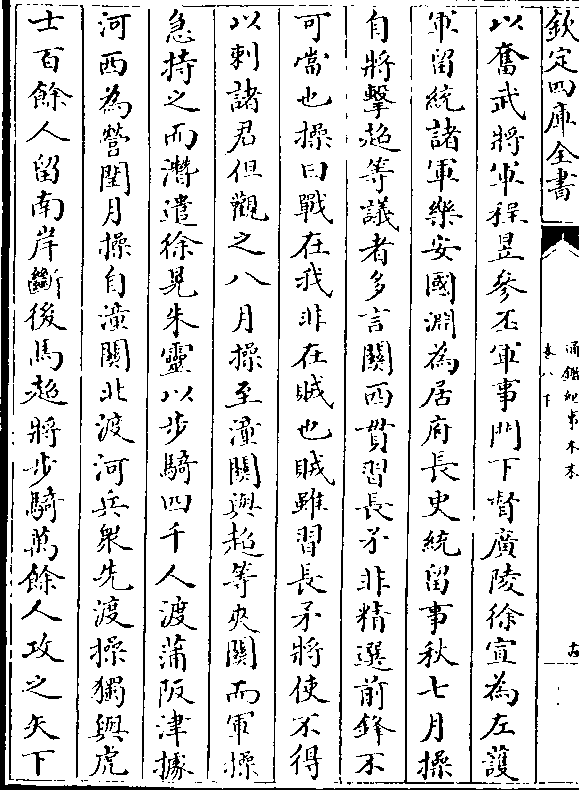 欽定四庫全書
通鑑紀事本末
卷八下
以奮武將軍程昱參丕軍事門下督廣陵徐宣為左護
軍留統諸軍樂安國淵為居府長史統留事秋七月操
自將擊超等議者多言關西貫習長矛非精選前鋒不
可當也操曰戰在我非在賊也賊雖習長矛將使不得
以刺諸君但觀之八月操至潼關與超等夾關而軍操
急持之而濳遣徐晃朱靈以步騎四千人渡蒲阪津據
河西為營閏月操自潼關北渡河兵衆先渡操獨與虎
士百餘人留南岸斷後馬超將步騎萬餘人攻之矢下